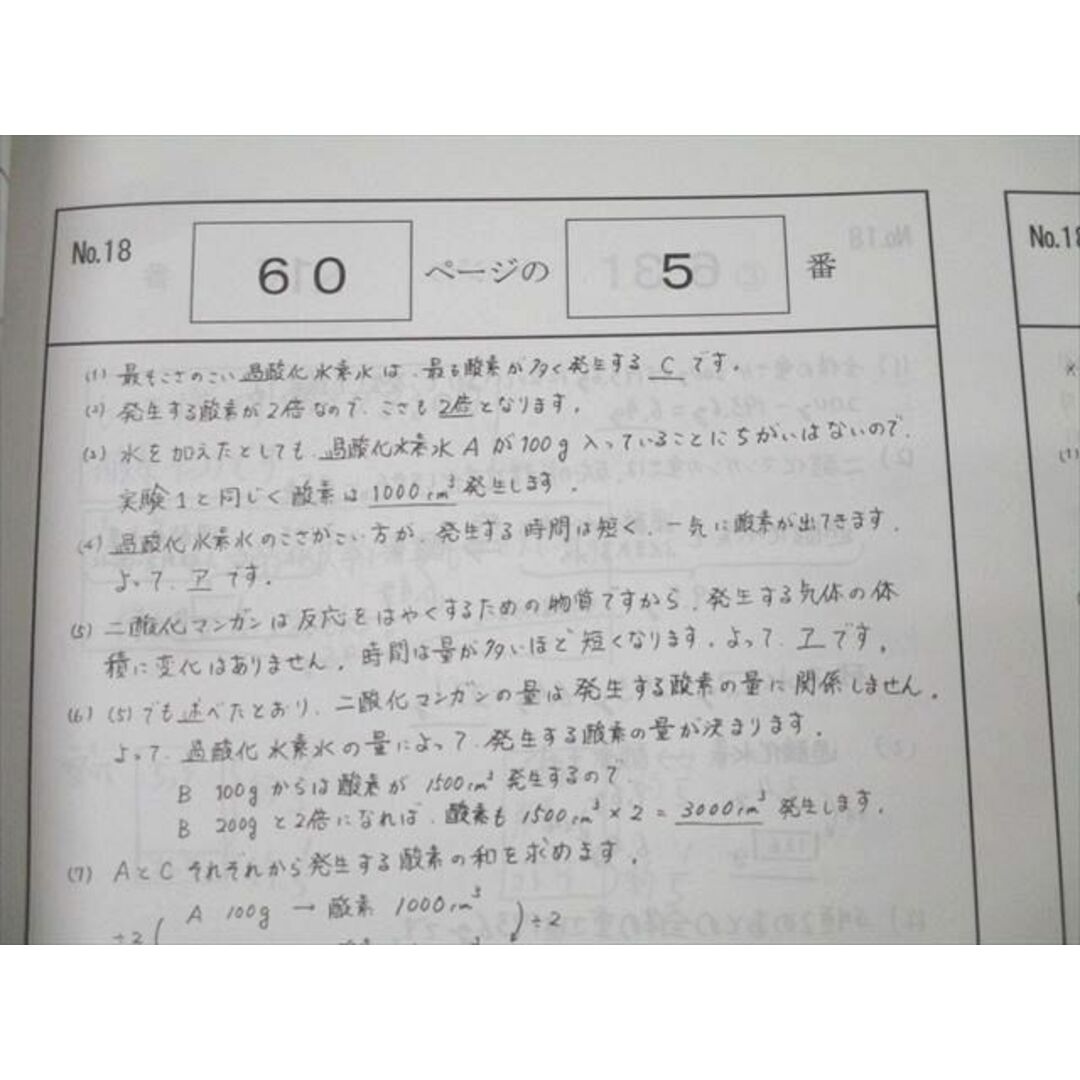 No.18
60 ページの 5 番
(1) 最もこさのこい過酸化水素水は、最も酸素が多く発生する C です。
(2) 発生する酸素が2倍なので、こさも2倍となります。
(3) 水を加えたとしても、過酸化水素水 A が100g 入っていることにちがいはないので、
実験1と同じく酸素は1000cm³発生します。
(4) 過酸化水素水のこさがこい方が、発生する時間は短く、一気に酸素が出てきます。
よって、ア です。
(5) 二酸化マンガンは反応をはやくするための物質ですから、発生する気体の体
積に変化はありません。時間は量が多いほど短くなります。よって、エです。
(6) (5)でも述べたとおり、二酸化マンガンの量は発生する酸素の量に関係しません。
よって、過酸化水素水の量によって、発生する酸素の量が決まります。
B 100gからは酸素が 1500cm³ 発生するので、
B 200gと2倍になれば、酸素も1500cm³×2=3000cm³発生します。
(7) AとCそれぞれから発生する酸素の和を求めます。
A 100g → 酸素 1000cm³
÷2 ( ) ÷2
No.18